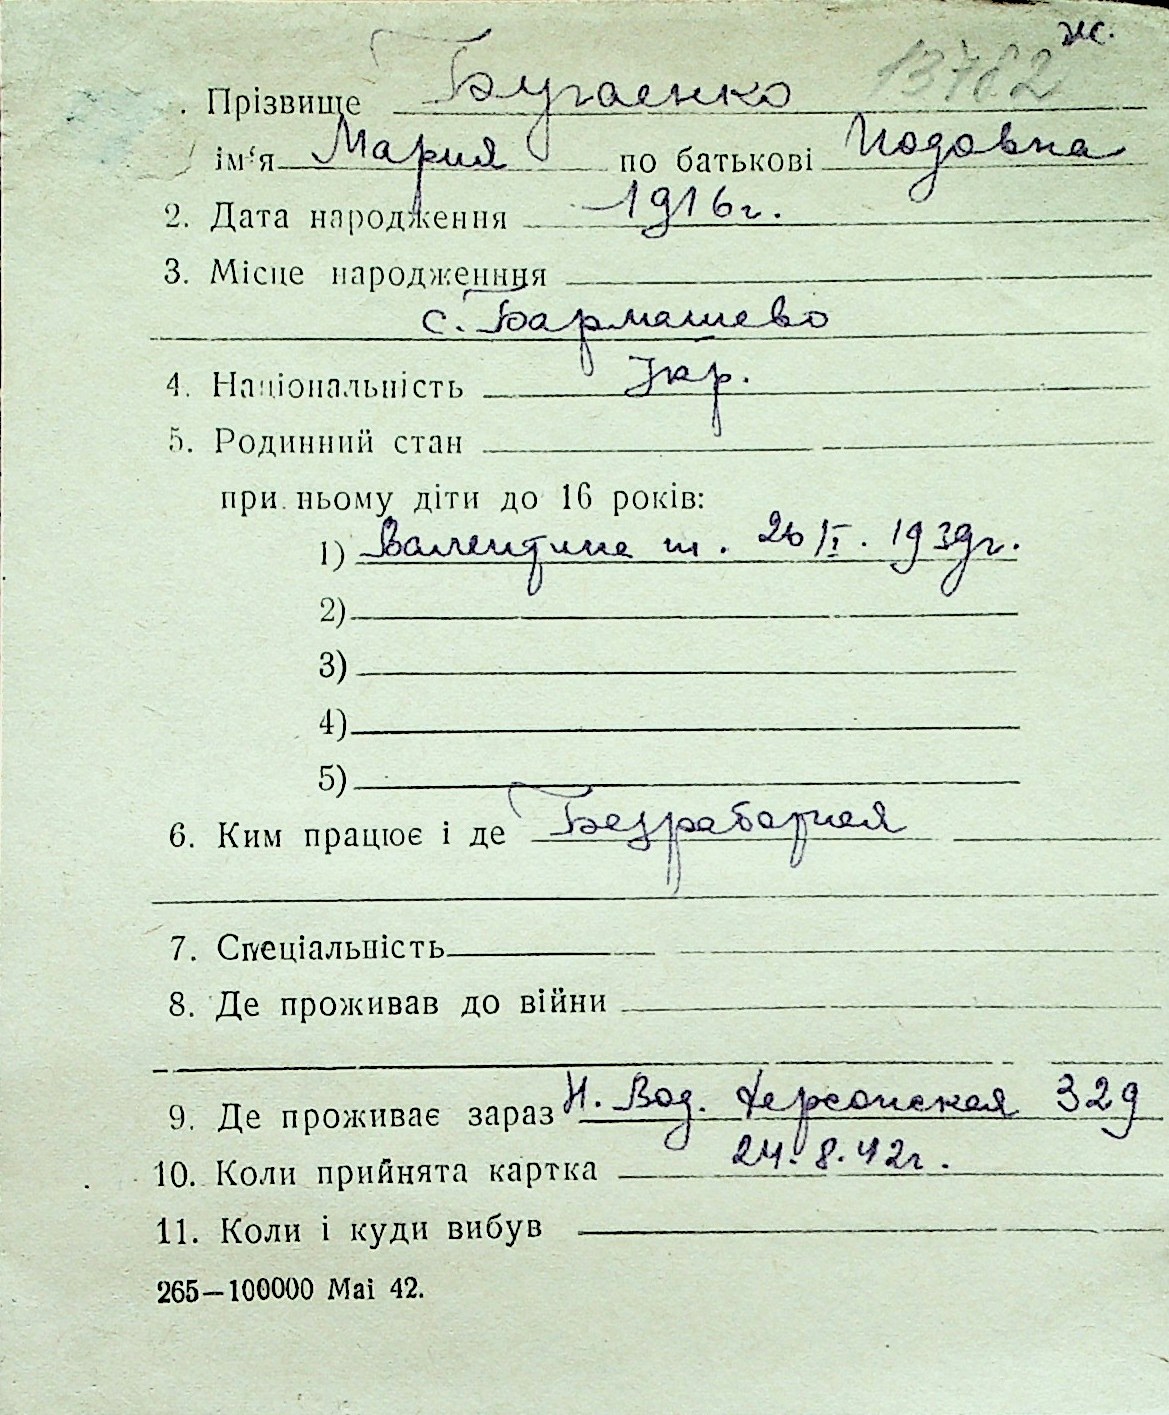 ж.
13762
Прізвище Бугаенко
ім‘я Мария по батькові
2. Дата народження 1916г.
3. Місце народженння
с. Бармашево
4. Національність Укр.
5. Родинний стан
при ньому діти до 16 років:
1) Валентина 26/I. 1939г.
2)
3)
4)
5)
6. Ким працює і де Безработная
7. Спеціальність
8. Де проживав до війни
9. Де проживає зараз Н. Вод. Херсонская 329
10. Коли прийнята картка 24.8.42г.
11. Коли і куди вибув
265—100000 Mai 42.